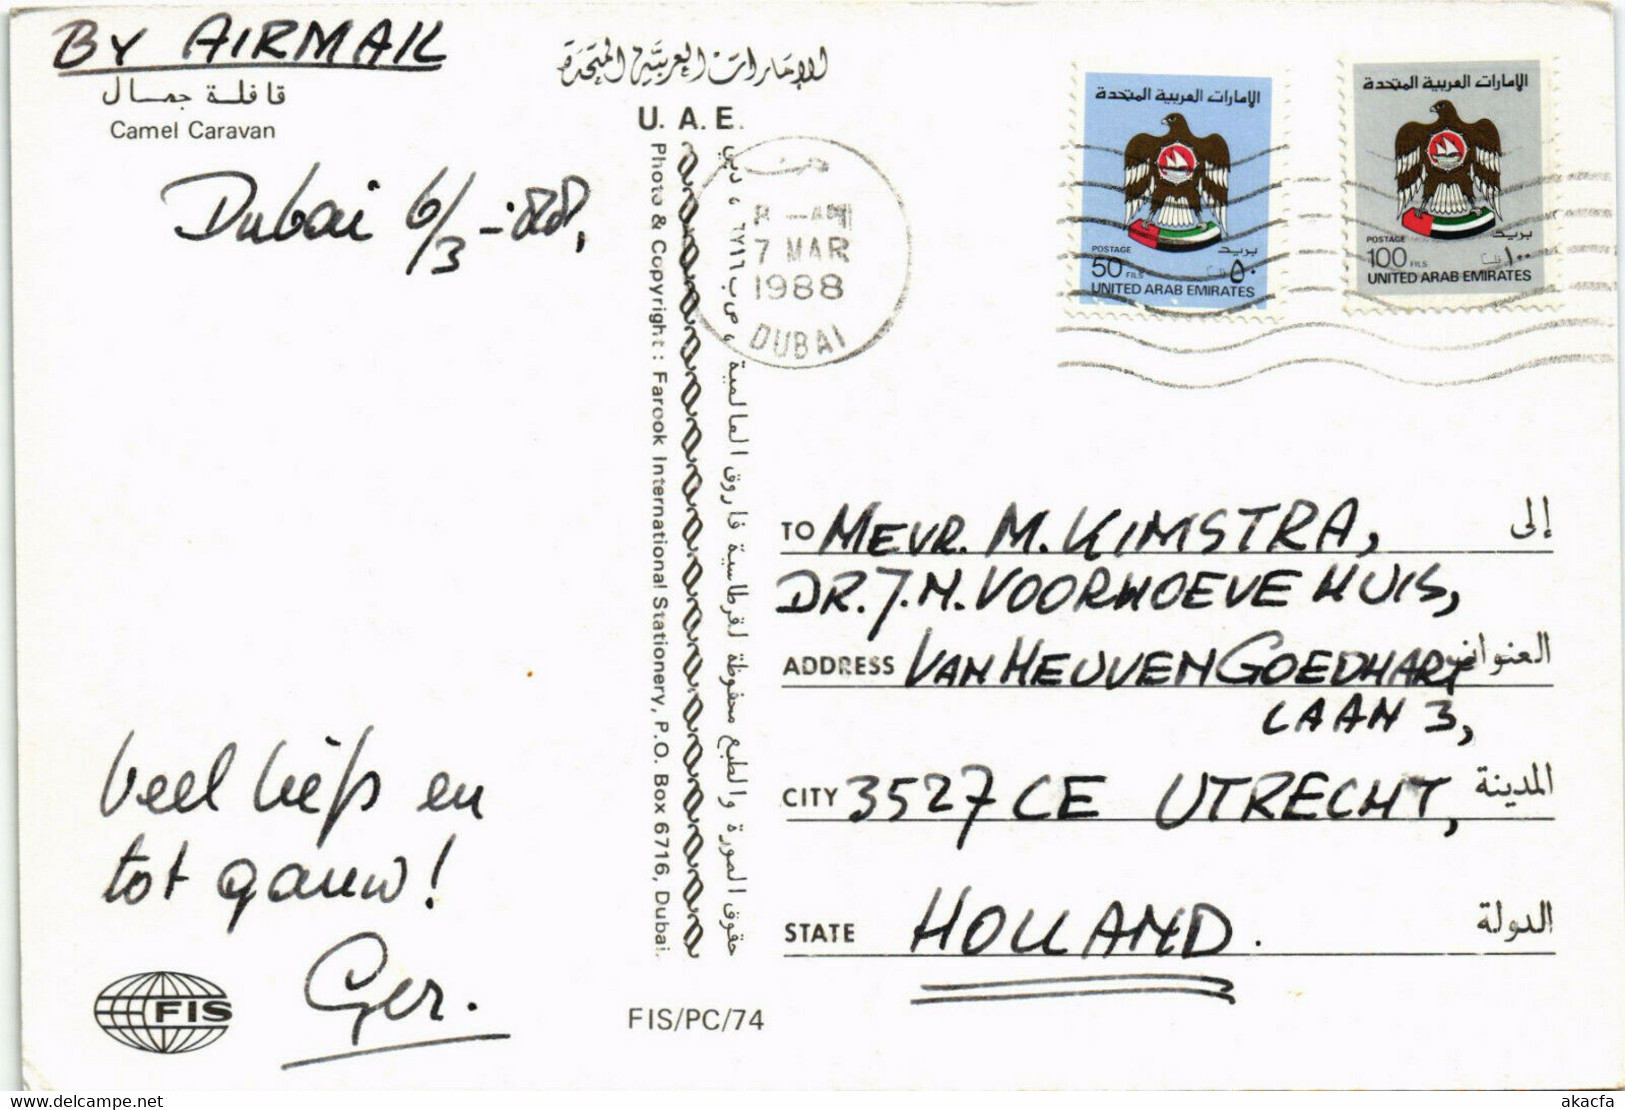 BY AIRMAIL
قافلة جمال
Camel Caravan
Dubai 6/3-'88,
Veel liefs en
tot gauw!
Ger.
FIS
الإمارات العربية المتحدة
U. A. E.
Photo & Copyright : Farook International Stationery, P.O. Box 6716, Dubai.
حقوق الصورة والطبع محفوظة لقرطاسية فاروق العالمية ، ص ب ٦٧١٦ ، دبي
FIS/PC/74
7 MAR
1988
DUBAI
الإمارات العربية المتحدة
POSTAGE
بريد
50 FILS
٥٠
UNITED ARAB EMIRATES
الإمارات العربية المتحدة
POSTAGE
بريد
100 FILS
١٠٠
UNITED ARAB EMIRATES
TO MEVR. M. KIMSTRA, إلى
DR. J.N. VOORHOEVE HUIS,
ADDRESS VAN HEUVEN GOEDHART العنوان
LAAN 3,
CITY 3527 CE UTRECHT, المدينة
STATE HOLLAND. الدولة
akacfa
delcampe.net